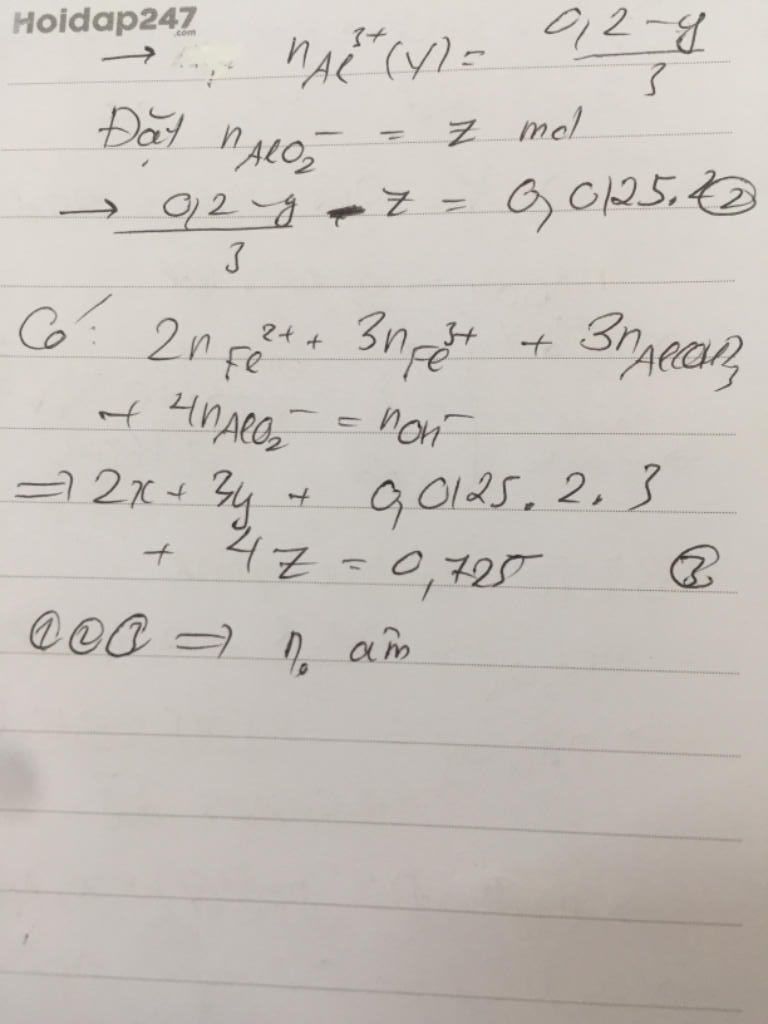 Hoidap247
.com
→ nAl³⁺(Y) = (0,2 - y)/3
Đặt nAlO₂⁻ = z mol
→ (0,2 - y)/3 - z = 0,0125.2 ②
Có: 2nFe²⁺ + 3nFe³⁺ + 3nAl(OH)₃
+ 4nAlO₂⁻ = nOH⁻
⇒ 2x + 3y + 0,0125.2.3
+ 4z = 0,725 ③
①②③ ⇒ n. âm